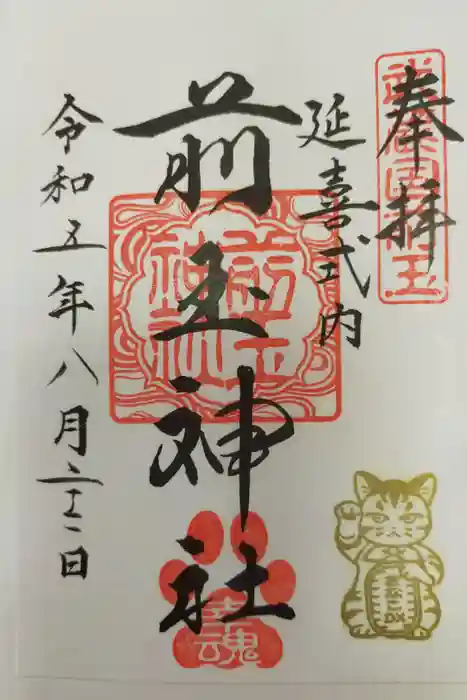 奉拝
延喜式内
前玉神社
前玉
神社
幸魂
令和五年八月
日
DX